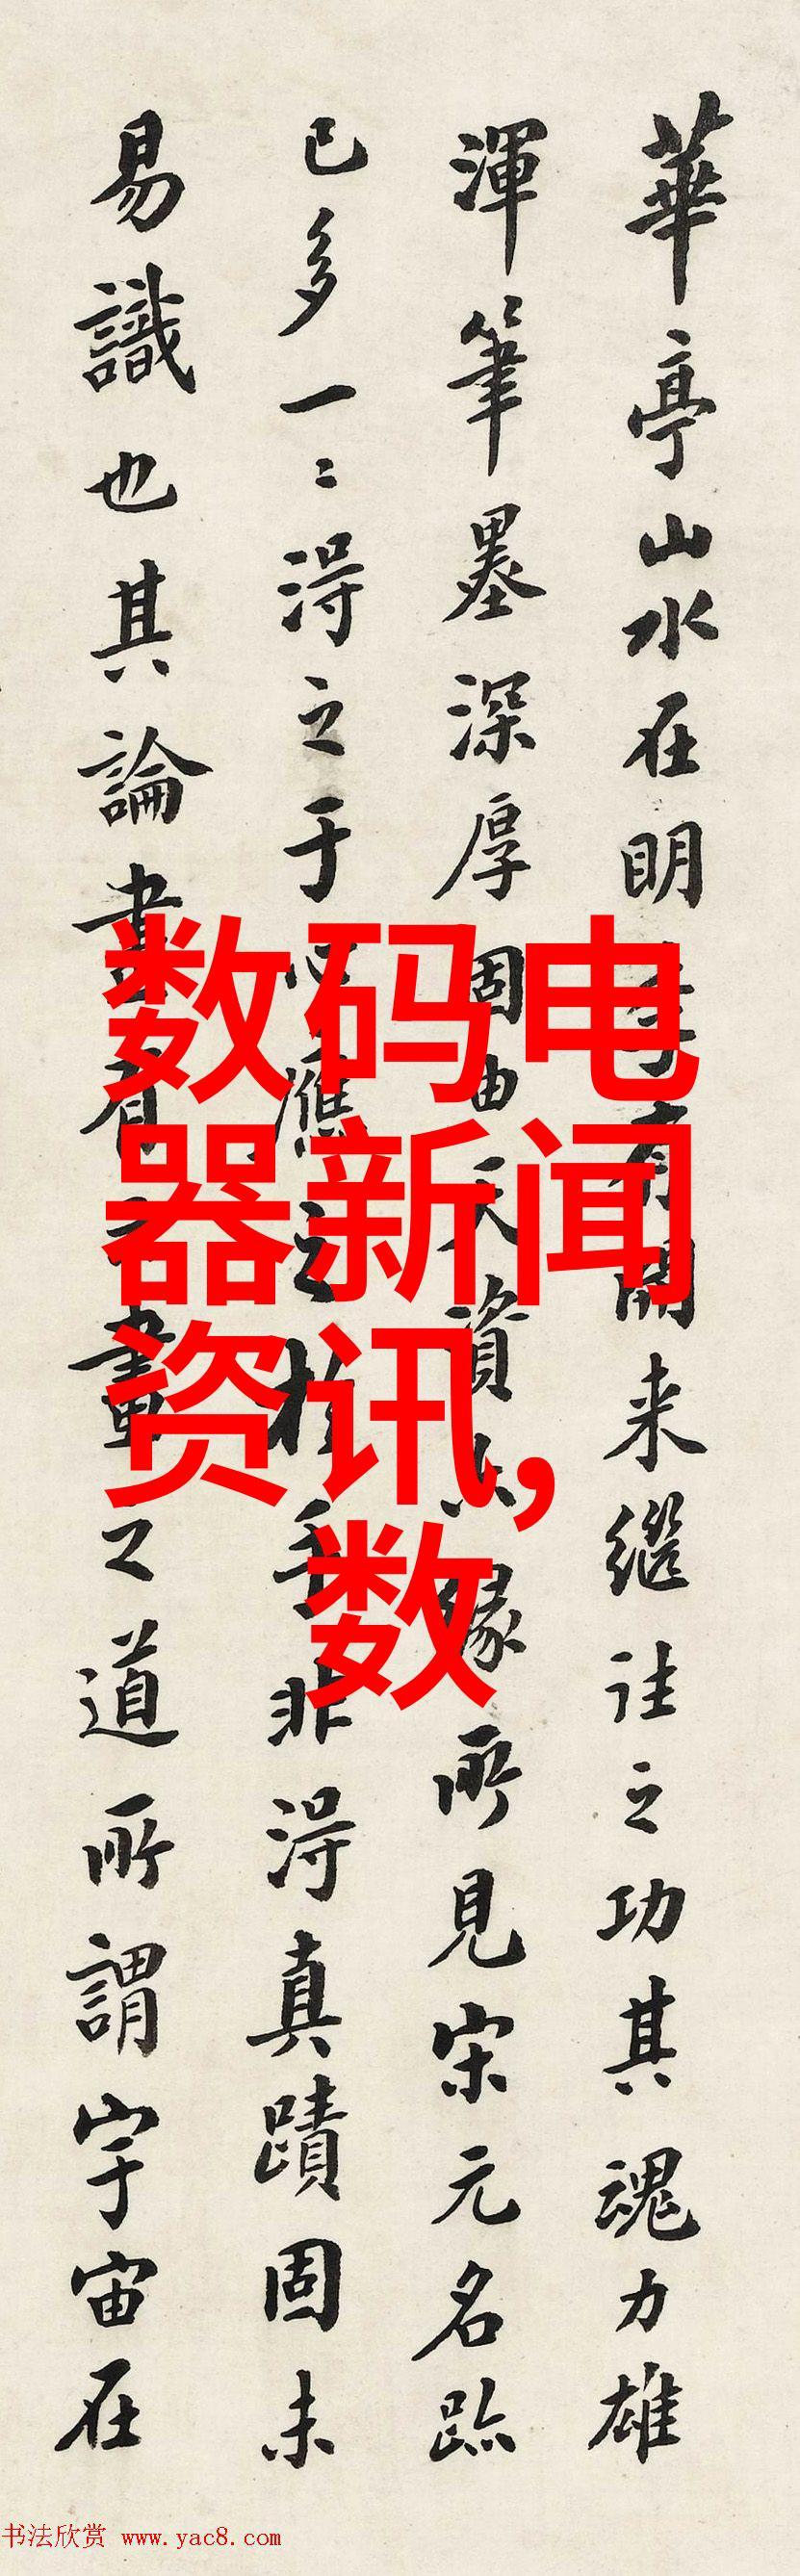 華亭山水在明季有開来繼往之功其魂力雄
渾筆墨深厚固由天資亦緣所見宋元名跡
已多一二得之于心應之於手非得真蹟固未
易識也其論畫有云畫之道所謂宇宙在
数码电
器新闻
资讯,
数
书法欣赏 www.yac8.com